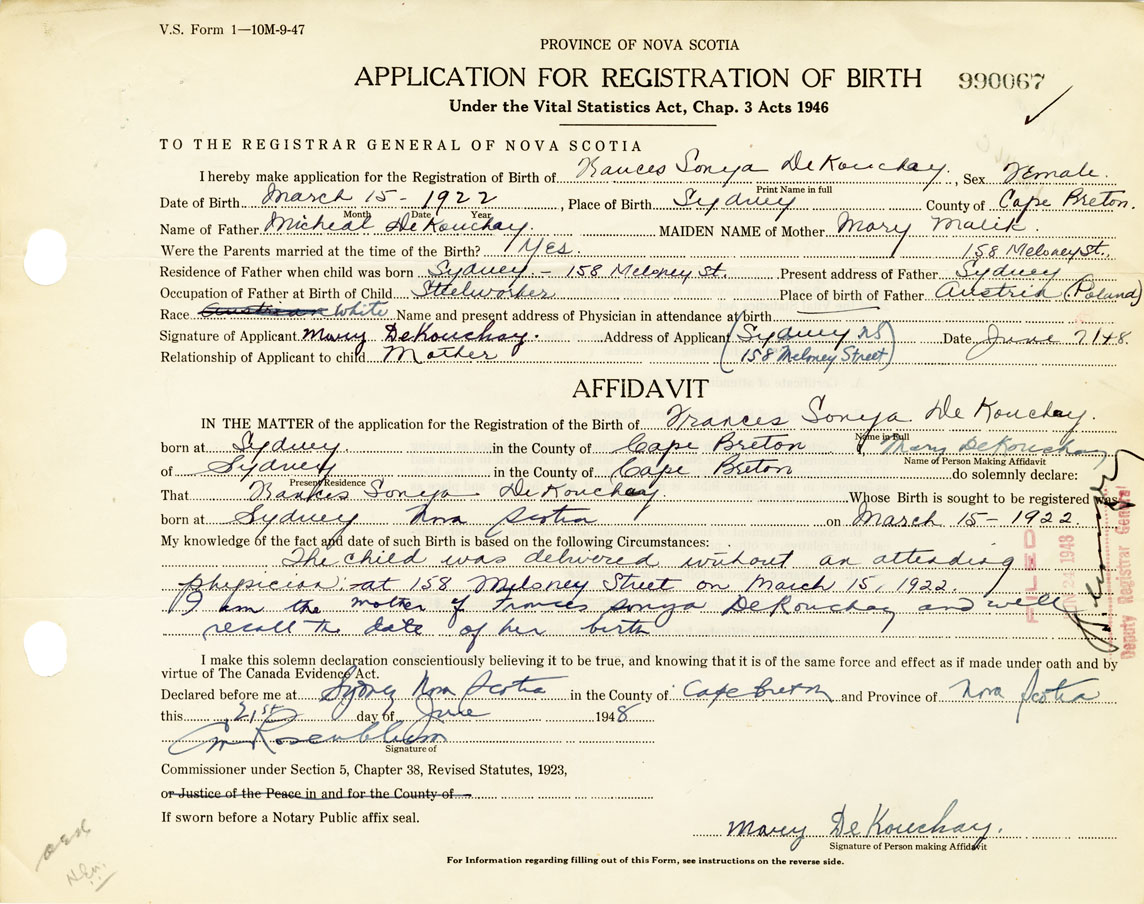 V.S. Form 1—10M-9-47
PROVINCE OF NOVA SCOTIA
APPLICATION FOR REGISTRATION OF BIRTH 990067
Under the Vital Statistics Act, Chap. 3 Acts 1946
TO THE REGISTRAR GENERAL OF NOVA SCOTIA
I hereby make application for the Registration of Birth of Frances Sonya DeKouchay, Sex Female.
Print Name in full
Date of Birth March 15 - 1922, Place of Birth Sydney County of Cape Breton.
Month Date Year
Name of Father Micheal DeKouchay. MAIDEN NAME of Mother Mary Malik.
Were the Parents married at the time of the Birth? Yes. 158 Meloney St.
Residence of Father when child was born Sydney - 158 Meloney St. Present address of Father Sydney
Occupation of Father at Birth of Child Steelworker Place of birth of Father Austria (Poland)
Race Austrian White Name and present address of Physician in attendance at birth
Signature of Applicant Mary DeKouchay. Address of Applicant (Sydney NS Date June 21 48.
Relationship of Applicant to child Mother 158 Meloney Street)
AFFIDAVIT
IN THE MATTER of the application for the Registration of the Birth of Frances Sonya DeKouchay.
Name in Full
born at Sydney. in the County of Cape Breton I Mary DeKouchay
Name of Person Making Affidavit
of Sydney in the County of Cape Breton do solemnly declare:
Present Residence
That Frances Sonya DeKouchay. Whose Birth is sought to be registered was
born at Sydney Nova Scotia on March 15 - 1922.
My knowledge of the fact and date of such Birth is based on the following Circumstances:
The child was delivered without an attending
physician: at 158 Meloney Street on March 15, 1922.
I am the mother of Frances Sonya DeKouchay and well
recall the date of her birth
FILED
1948
Deputy Registrar General
I make this solemn declaration conscientiously believing it to be true, and knowing that it is of the same force and effect as if made under oath and by
virtue of The Canada Evidence Act.
Declared before me at Sydney Nova Scotia in the County of Cape Breton and Province of Nova Scotia
this 21st day of June 1948
C M Rosenblum
Signature of
Commissioner under Section 5, Chapter 38, Revised Statutes, 1923,
or Justice of the Peace in and for the County of
If sworn before a Notary Public affix seal.
Mary DeKouchay.
Signature of Person making Affidavit
For Information regarding filling out of this Form, see instructions on the reverse side.